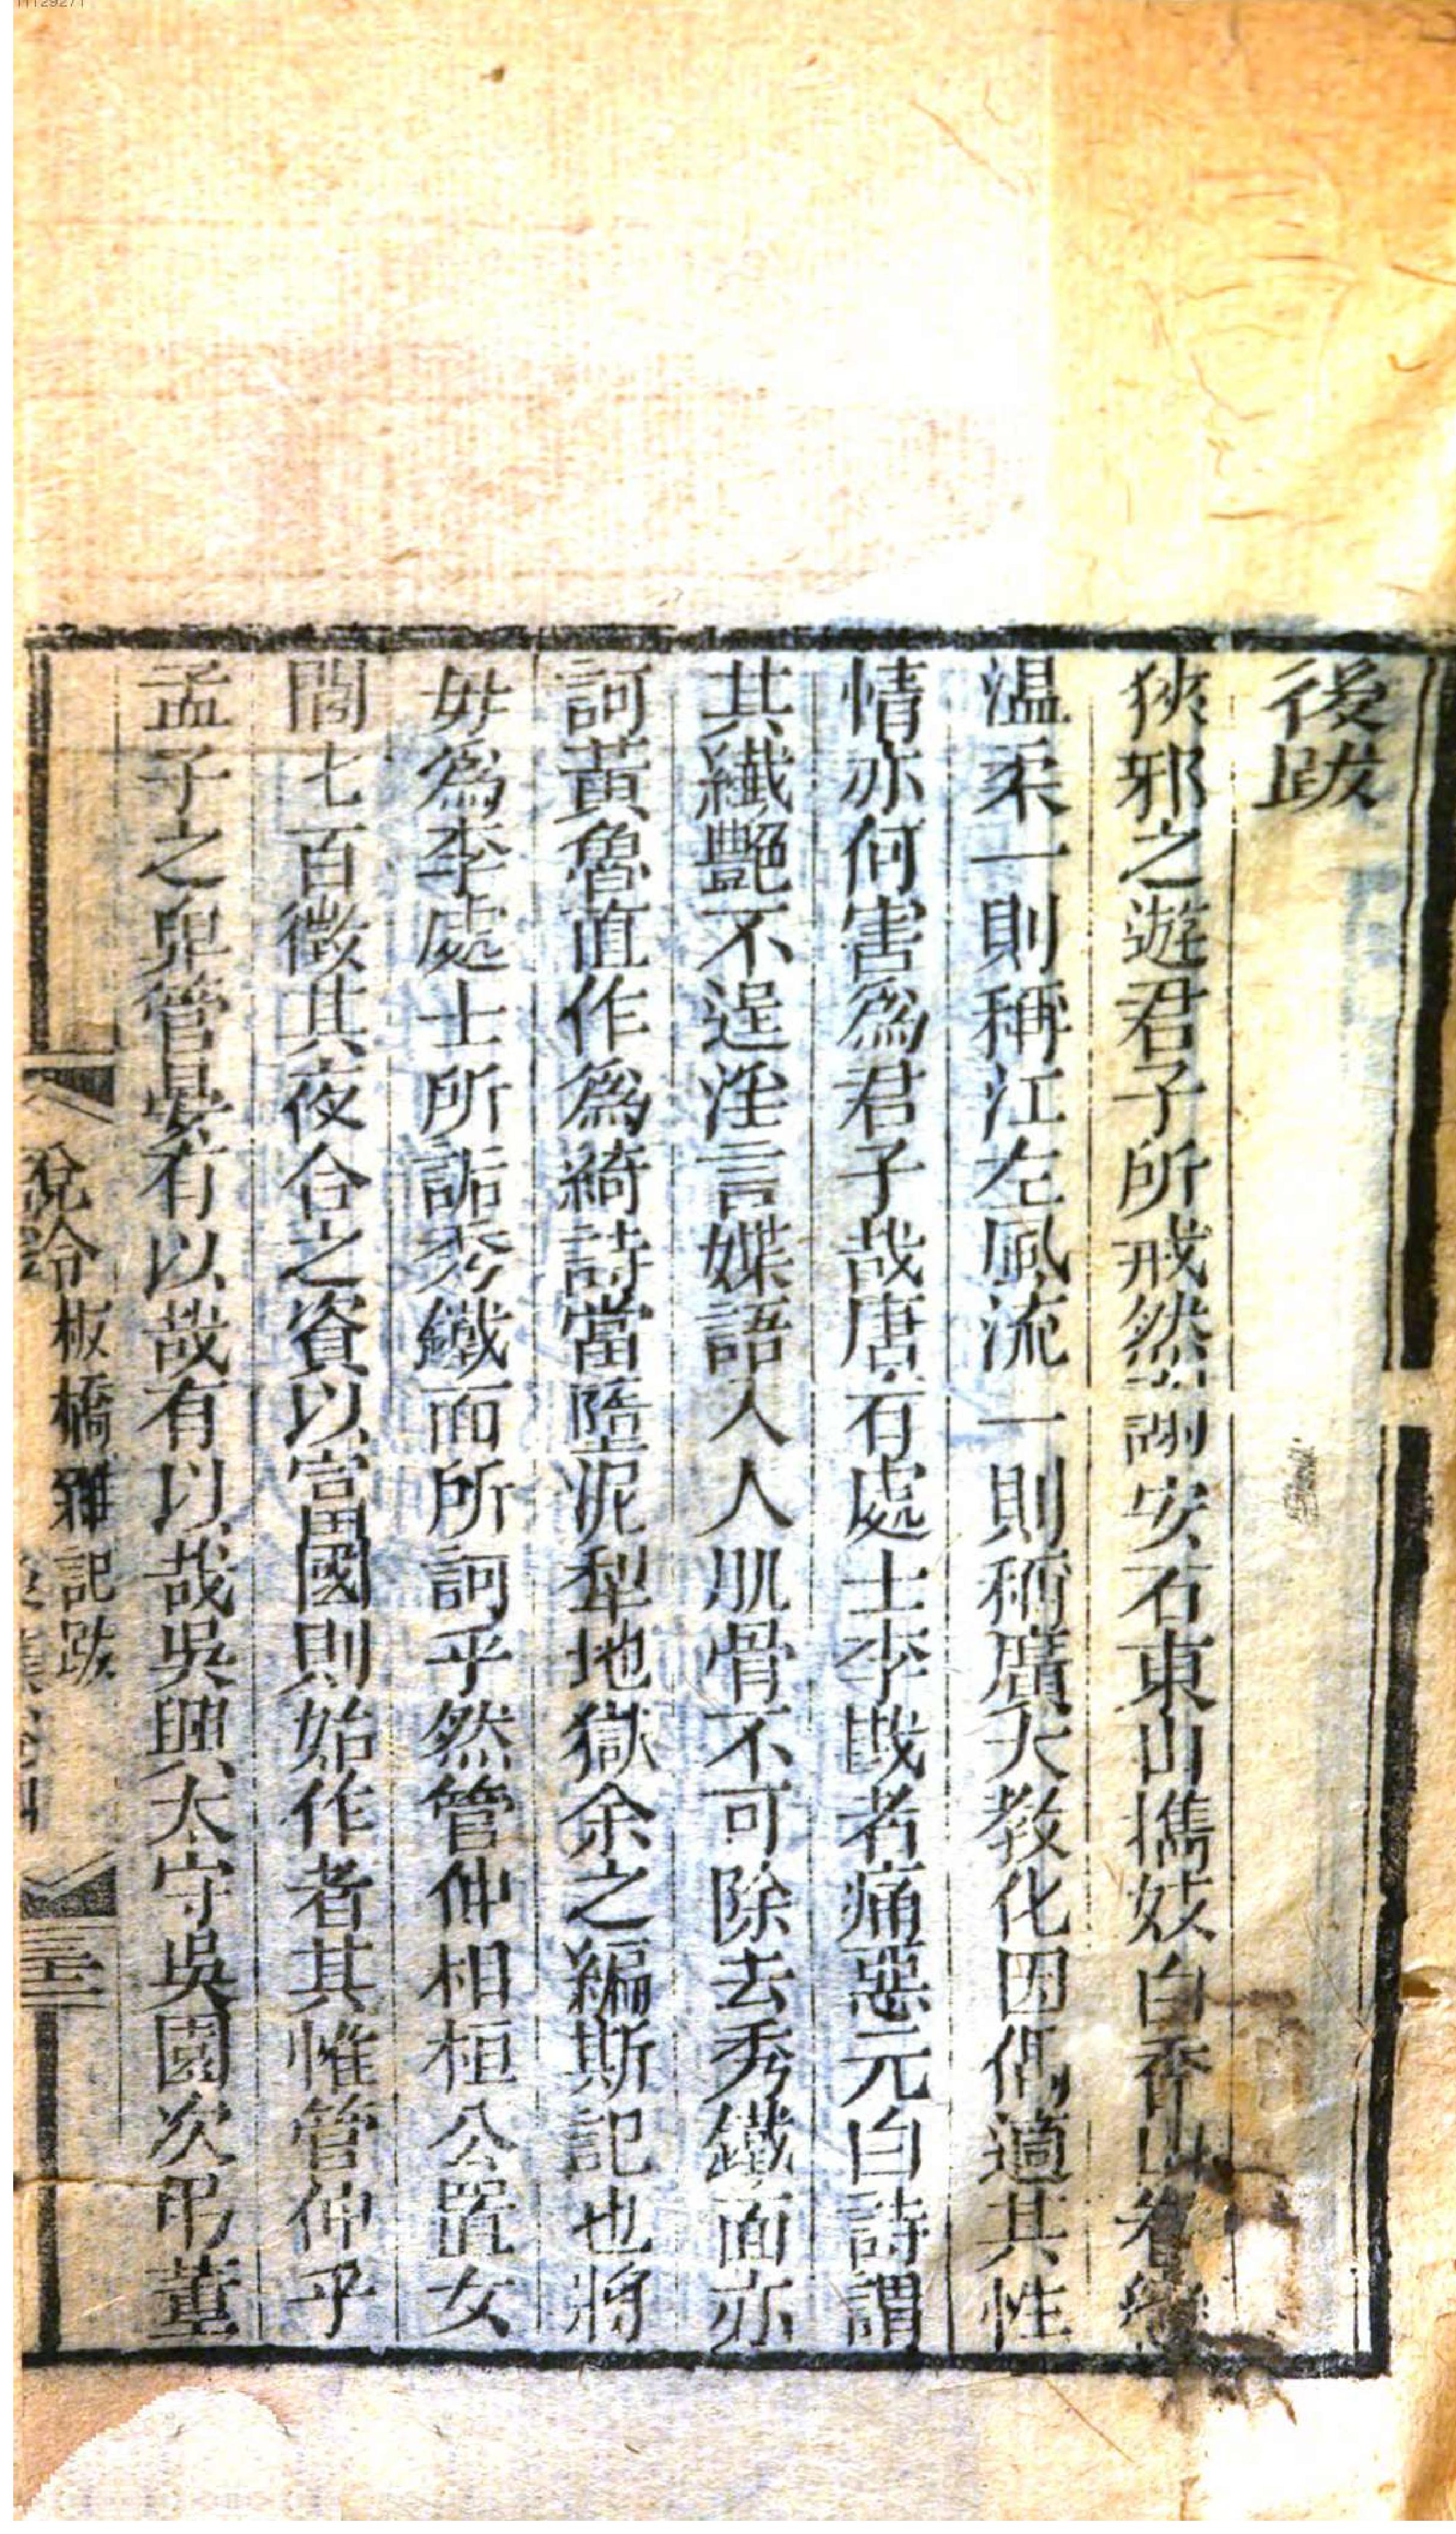 後跋
狹邪之遊君子所戒然謝安石東山攜妓白香山眷戀
溫柔一則稱江左風流一則稱廣大教化因偶適其性
情亦何害爲君子哉唐有處士李戡者痛惡元白詩謂
其纖艷不逞淫言媟語入人肌骨不可除去秀鐵面亦
訶黃魯直作爲綺詩當墮泥犂地獄余之編斯記也將
毋爲李處士所詬秀鐵面所訶乎然管仲相桓公置女
閭七百徵其夜合之資以富國則始作者其惟管仲乎
孟子之卑管晏有以哉有以哉吳興太守吳園次弔董
說鈴 板橋雜記跋